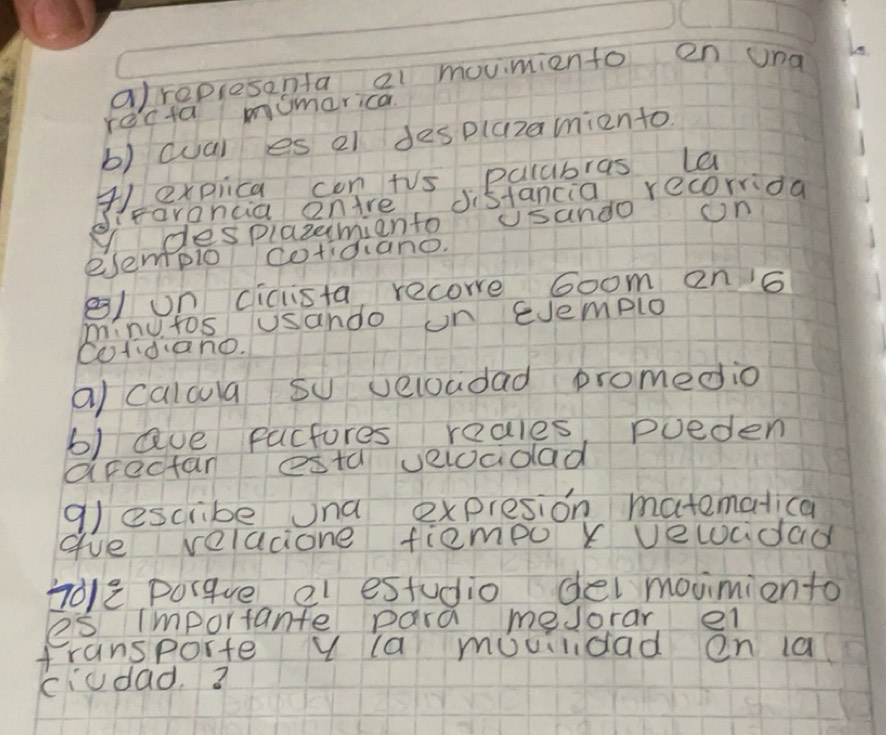 a) representa el movimiento en una
recta númerica.
b) cual es el desplazamiento.
7) explica con tus palabras la
diferencia entre distancia recorrida
y desplazamiento usando un
ejemplo cotidiano.
8) un ciclista recorre 600m en 6
minutos usando un ejemplo
cotidiano.
a) calcula su velocidad promedio
b) que factores reales pueden
afectar esta velocidad
9) escribe una expresión matematica
que relacione tiempo y velocidad
10) ¿ porque el estudio del movimiento
es importante para mejorar el
transporte y la movilidad en la
ciudad. ?